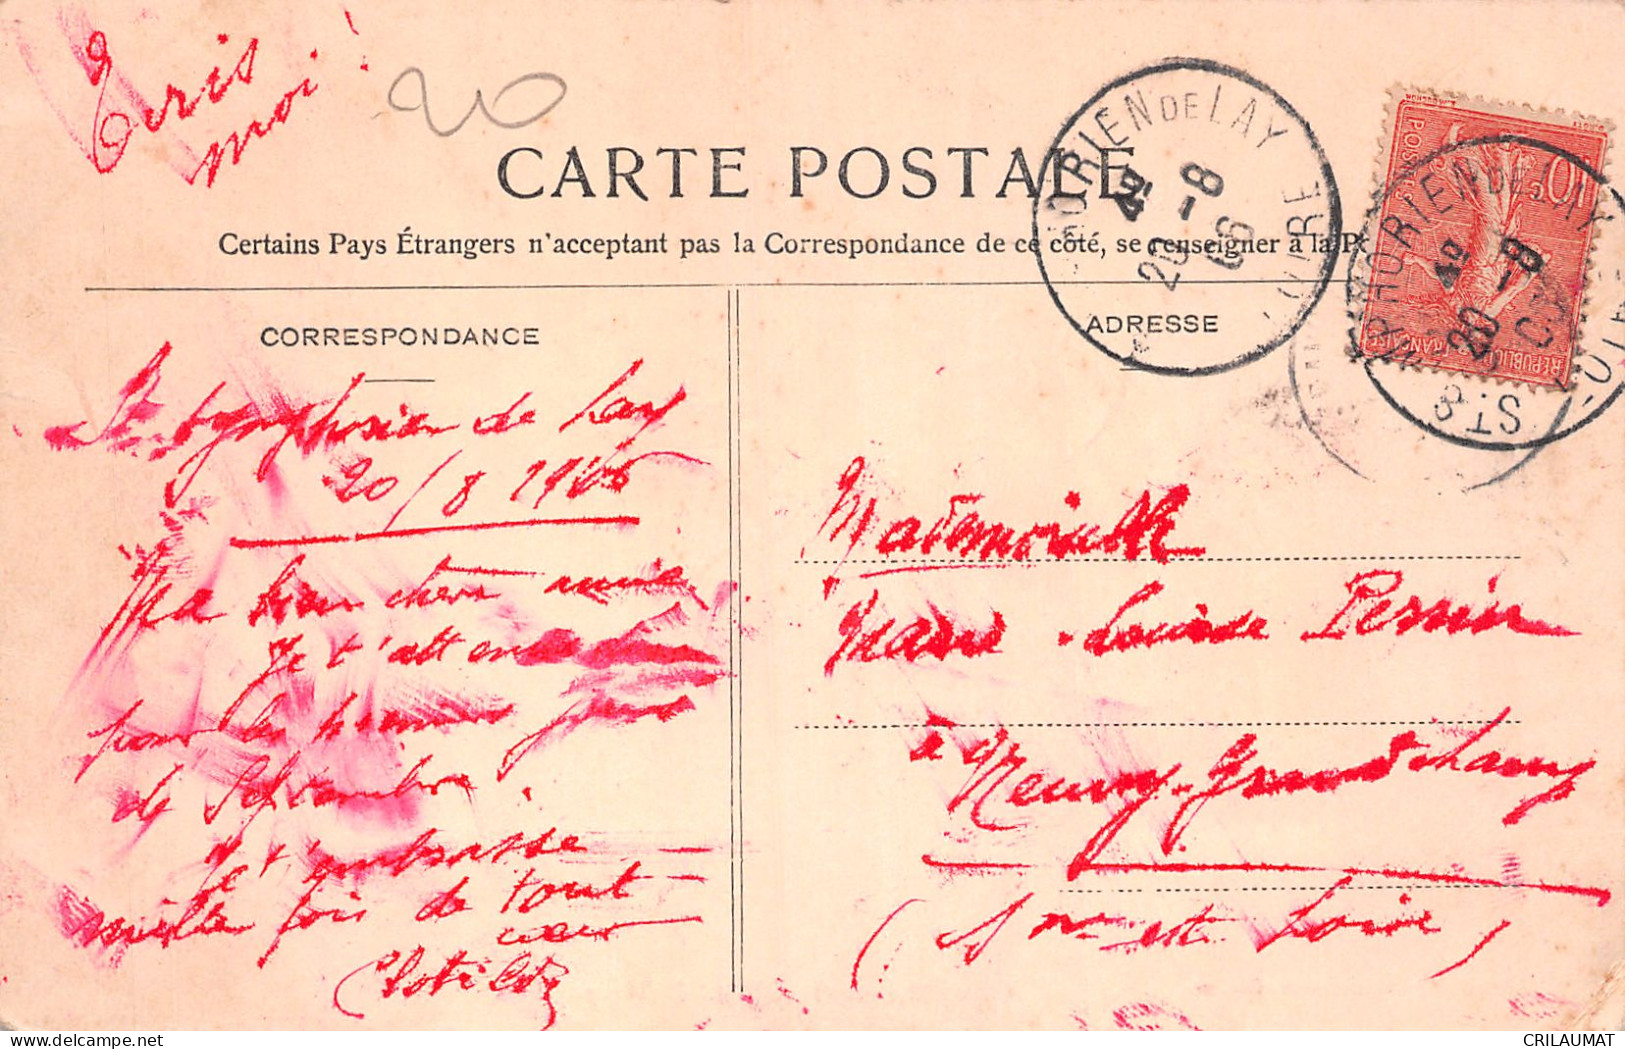 Ecris
moi !
20
CARTE POSTALE
Certains Pays Étrangers n'acceptant pas la Correspondance de ce côté, se renseigner à la P
CORRESPONDANCE
St Symphorien de Lay
20/8 1906
Ma bien chère amie
Je t'attends
pour les premiers jours
de Septembre.
Je t'embrasse
mille fois de tout
cœur
Clotilde
ADRESSE
Mademoiselle
Marie-Louise Perrin
à Neuvy-Grandchamp
(S ne et Loire)
PHORIEN DE LAY
4E
20 -8
06
LOIRE
10 c
POSTES
RÉPUBLIQUE FRANÇAISE
ST SYMPHORIEN DE LAY
4E
20 -8
LOIRE
CRILAUMAT